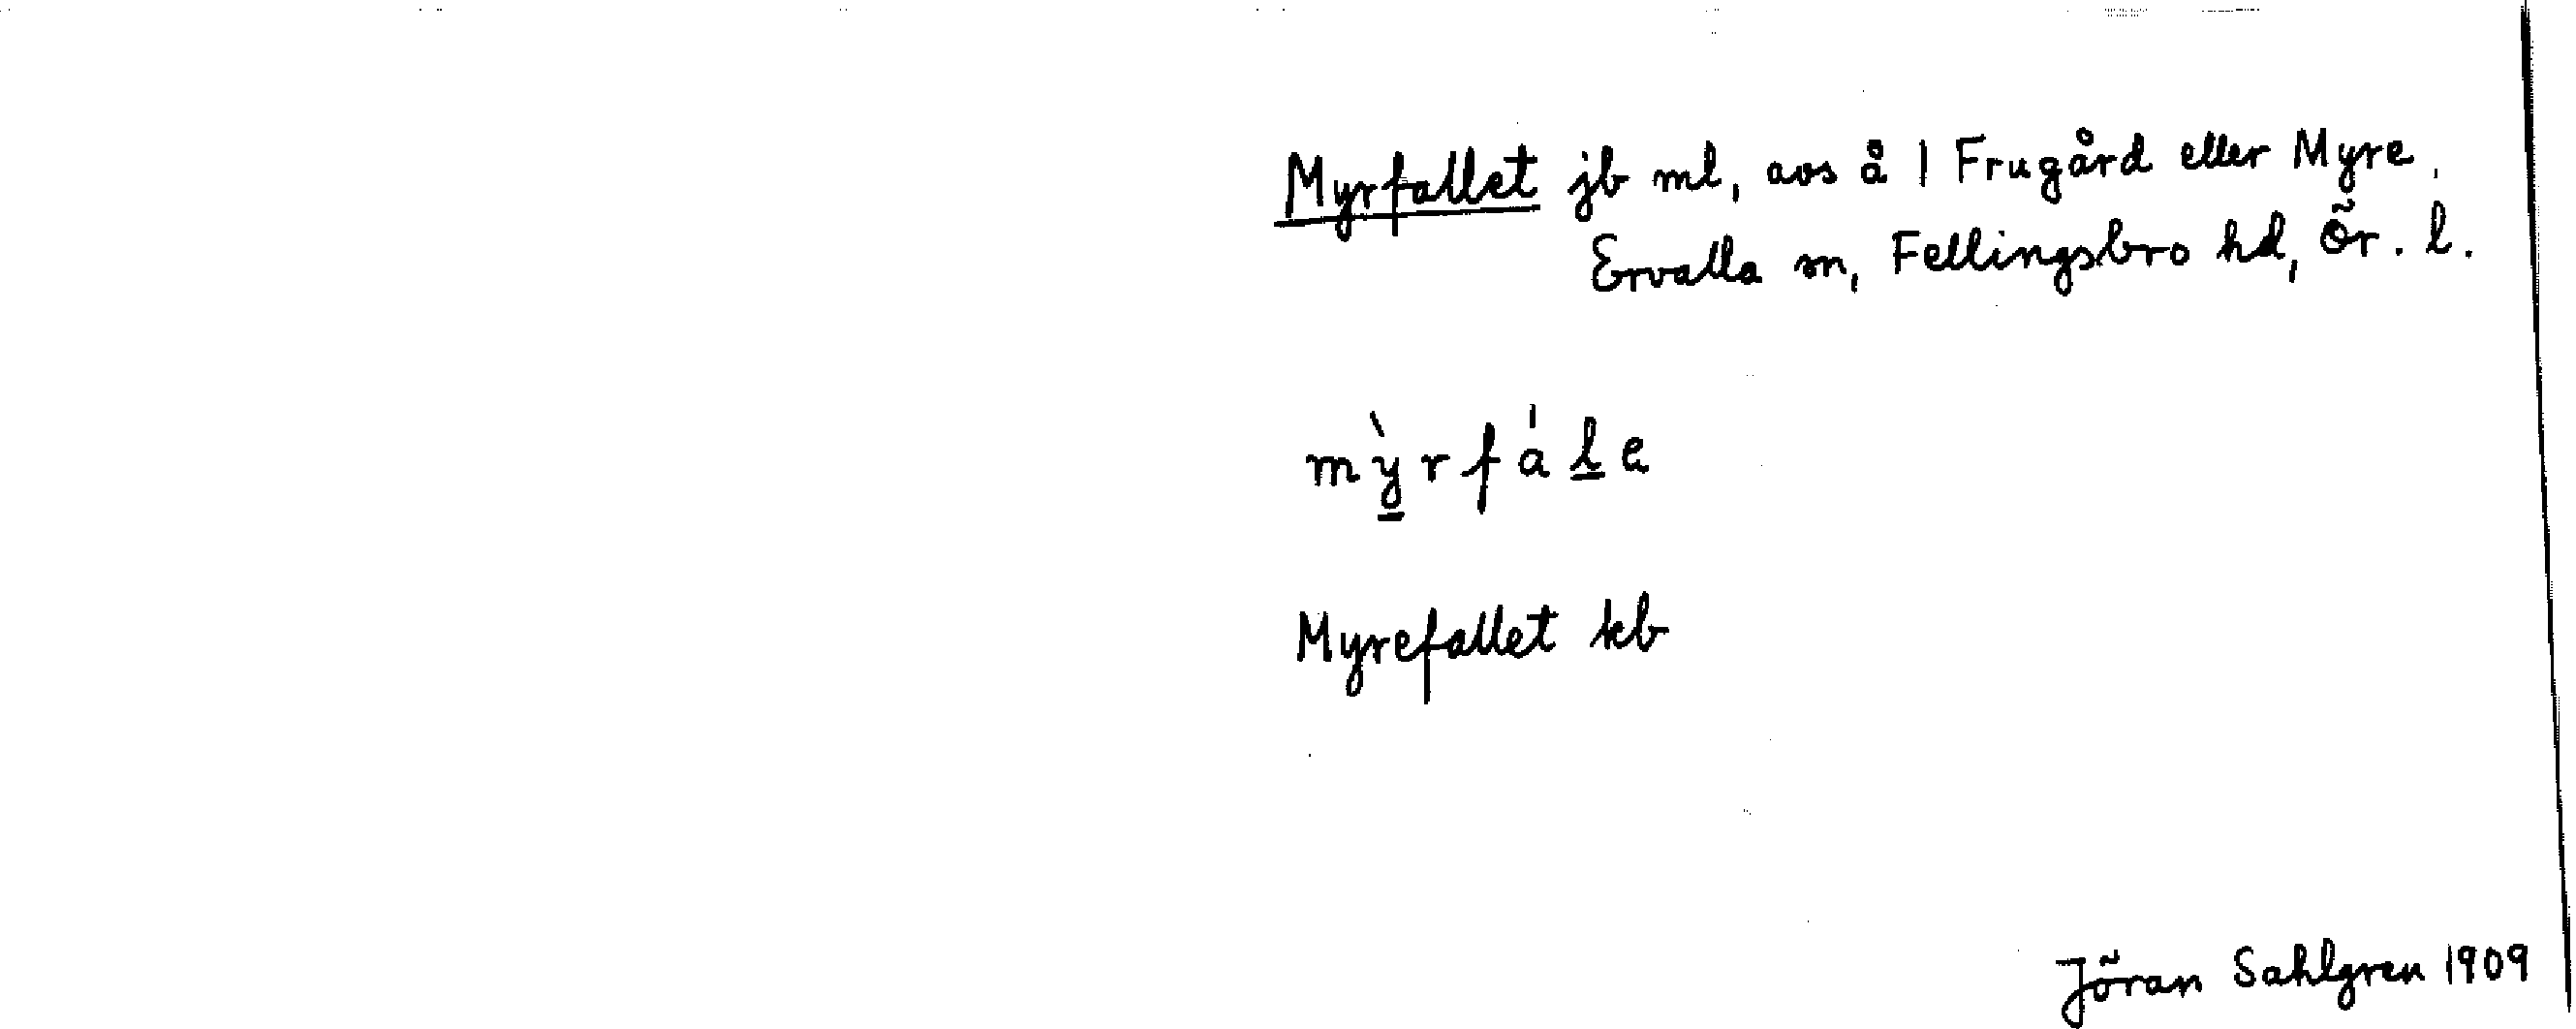 Myrfallet jb ml, avs å 1 Frugård eller Myre,
Ervalla sn, Fellingsbro hd, Ör. l.
mỳrfáḻe
Myrefallet kb
Jöran Sahlgren 1909